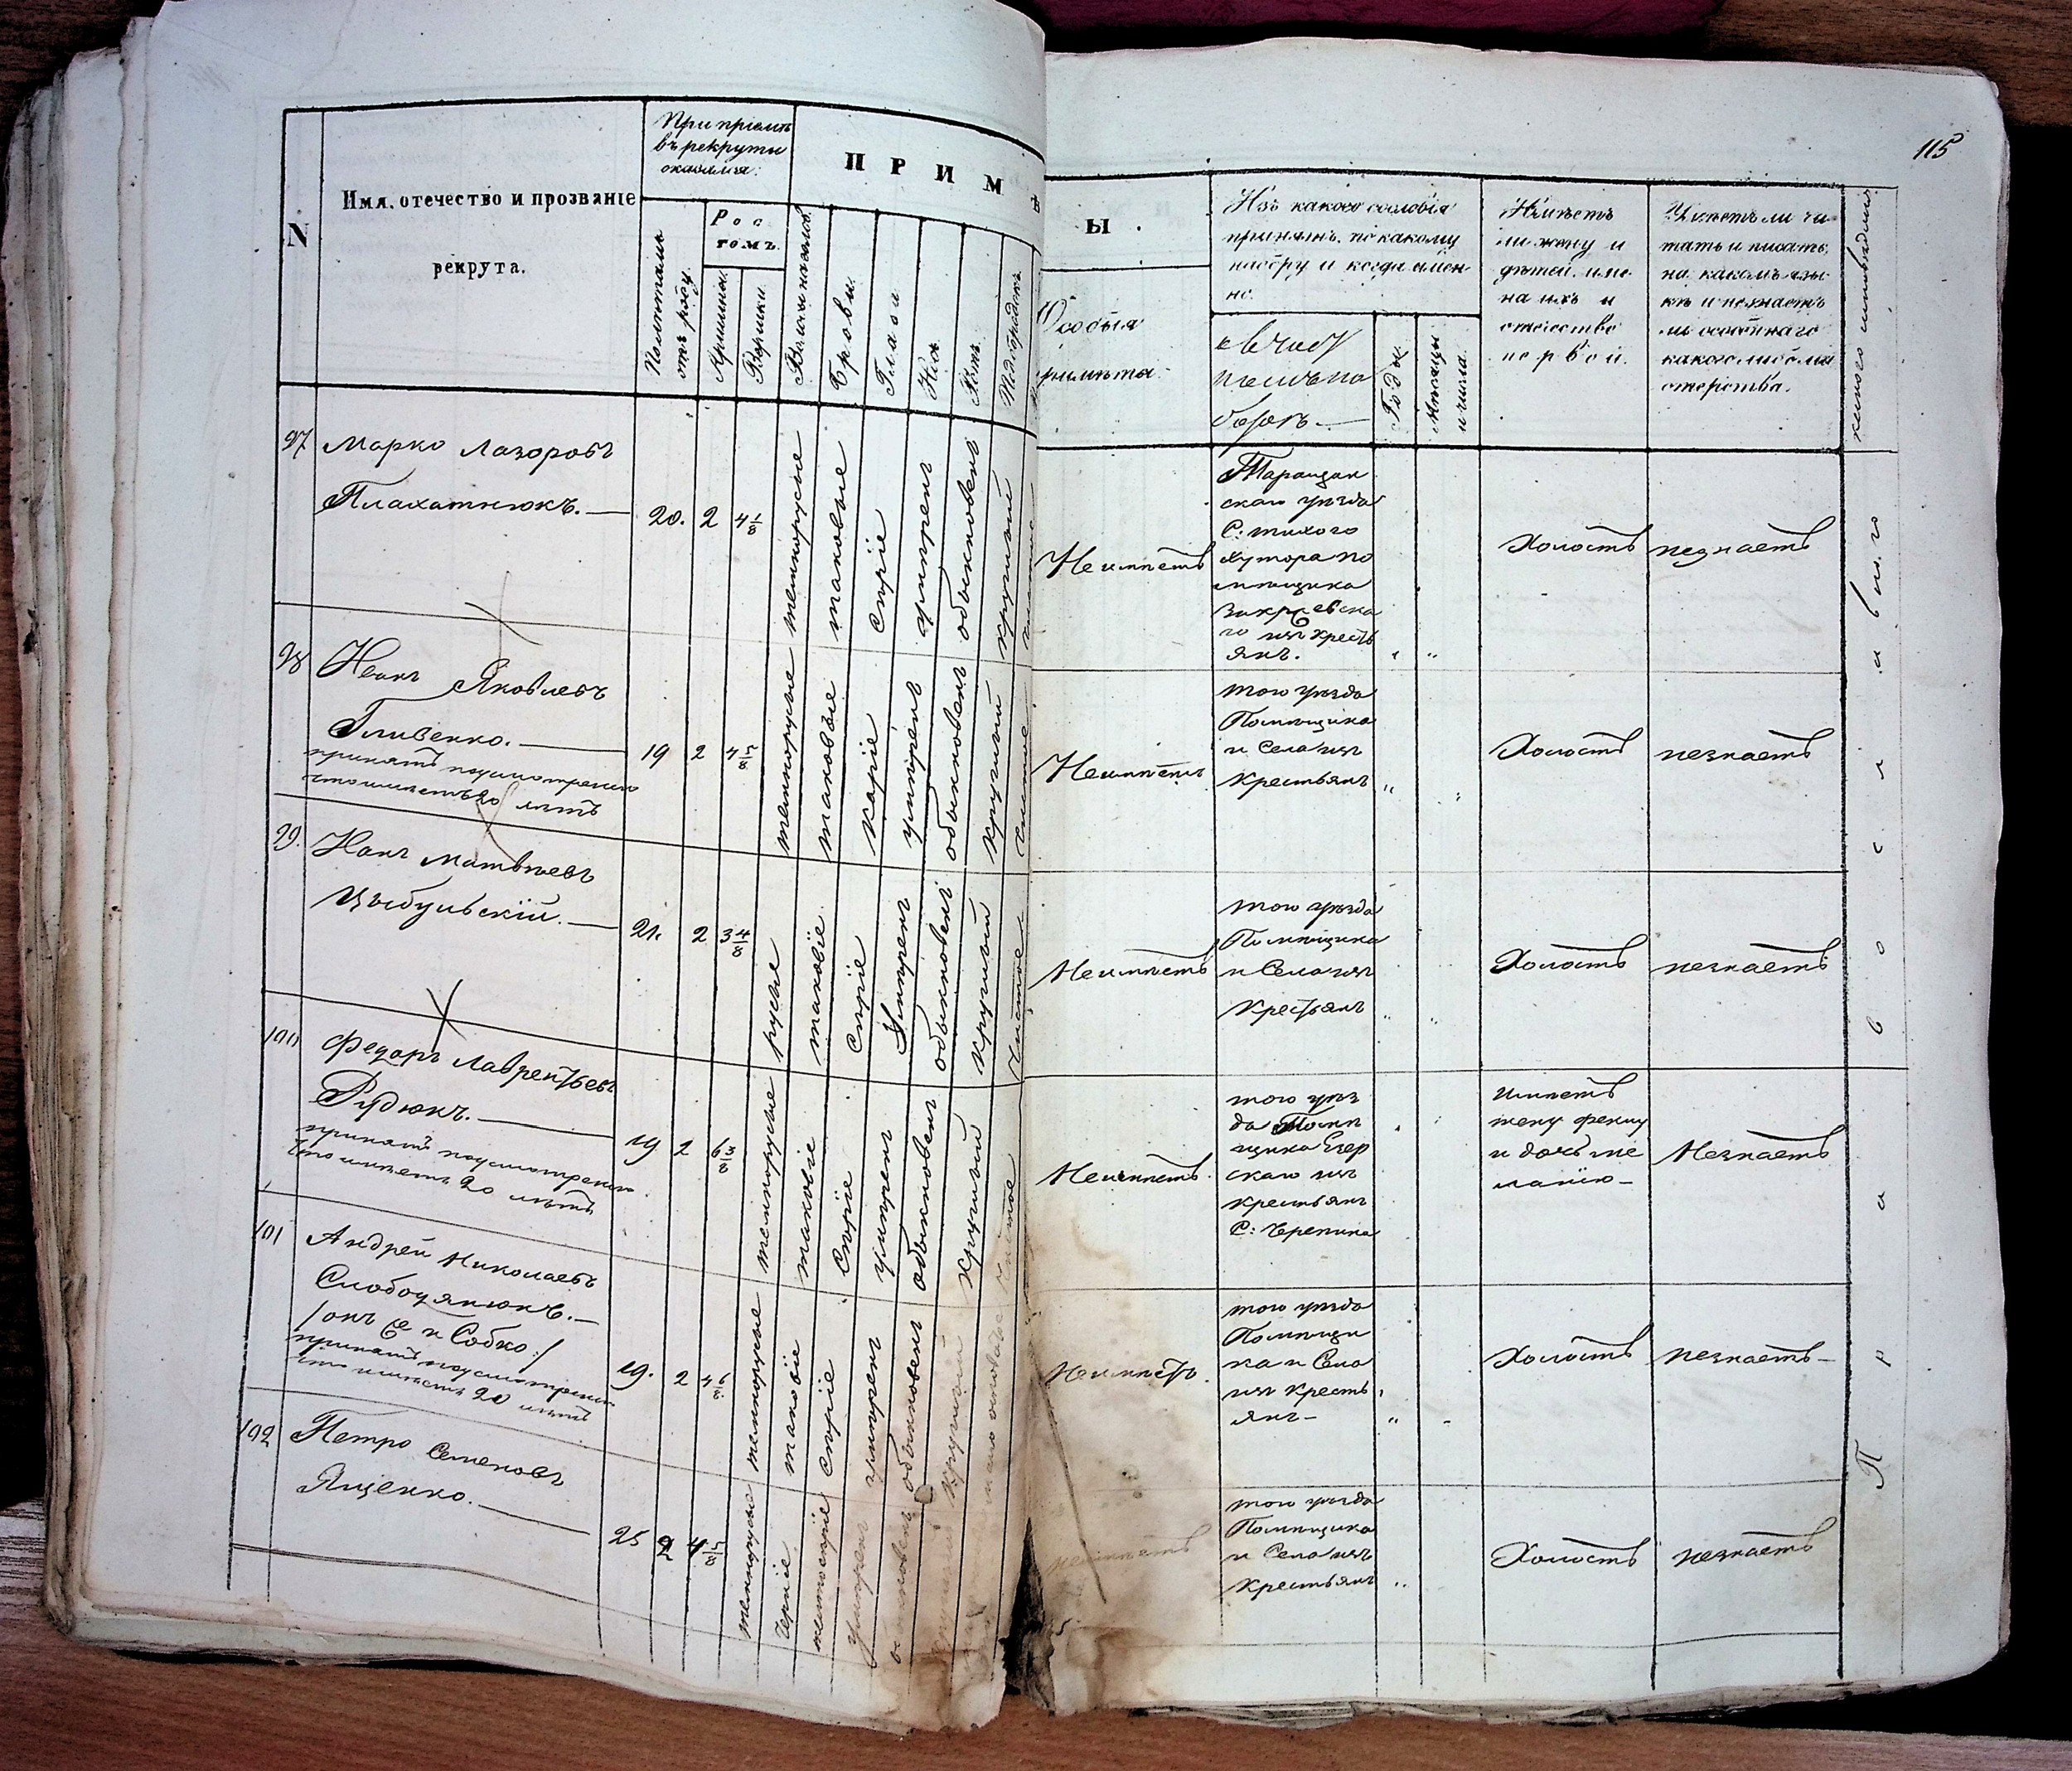 115
N
Имя, отечество и прозваніе
рекрута.
При пріемѣ
въ рекруты
оказался:
Полѣтамъ
отъ роду
Рос
томъ.
Аршины.
Вершки.
ПРИМѢ
Волосы на голов.
Брови.
Глаза
Носъ
Ротъ.
Подбородокъ
Ы.
Особыя
примѣты.
Изъ какого сословія
принятъ, по какому
набору и когда имен-
но.
Годы.
Мѣсяцы
и числа.
Имѣетъ
ли жену и
дѣтей, име-
на ихъ и
отечество
первой.
Умѣетъ ли чи-
тать и писать,
на какомъ язы-
кѣ и не знаетъ
ли особеннаго
какого либо ма
стерства.
97
Марко Лазоровъ
Плахатнюкъ.
20. 2 4 1/8
темнорусые
таковые
Сѣрiе
умѣренъ
обыкновенъ
круглый
Неимѣетъ
Таращан
скаго уѣзда
С: тихого
хутора по
мѣщика
Закревска
го изъ кресть
янъ.
Холостъ
незнаетъ
98
Иванъ Яковлевъ
Гливенко.
принятъ по усмотренію
что имѣетъ 20 лѣтъ
19 2 4 5/8
темнорусые
таковые
Карiе
умѣренъ
обыкновенъ
круглый
чистое
Неимѣетъ
того уѣзда
Помѣщика
и Села изъ
Крестьянъ
Холостъ
незнаетъ
99.
Иванъ Матвѣевъ
Цыбульскій.
21. 2 3 4/8
русые
таковіе
Сѣрiе
Умѣренъ
обыкновенъ
круглый
Чистое
Неимѣетъ
того уѣзда
Помѣщика
и Села изъ
Крестьянъ
Холостъ
незнаетъ
100
Федоръ Лаврентьевъ
Рудюкъ.
принятъ по усмотренію
что имѣетъ 20 лѣтъ
19 2 6 3/8
темнорусые
таковіе
Сѣрiе
умѣренъ
обыкновенъ
круглый
чистое
Неимѣетъ.
того уѣз
да Помѣ
щика Егер
скаго изъ
крестьянъ
С: Черепина
Имѣетъ
жену Феклу
и дочь ме
ланію
Незнаетъ
101
Андрей Николаевъ
Слободянюкъ.
/онъ же и Собко:/
принятъ по усмотренію
что имѣетъ 20 лѣтъ
19. 2 4 6/8
темнорусые
таковіе
Сѣрiе
умѣренъ
обыкновенъ
круглый
Неимѣетъ.
того уѣзда
Помѣщи
ка и Села
изъ кресть
янъ
Холостъ
незнаетъ
102
Петро Семеновъ
Яценко.
25 2 4 5/8
темнорусые
Чернiе
желтосѣрiе
умѣренъ
обыкновенъ
круглый
неимѣетъ
того уѣзда
Помѣщика
и Села изъ
Крестьянъ
Холостъ
незнаетъ
Православнаго